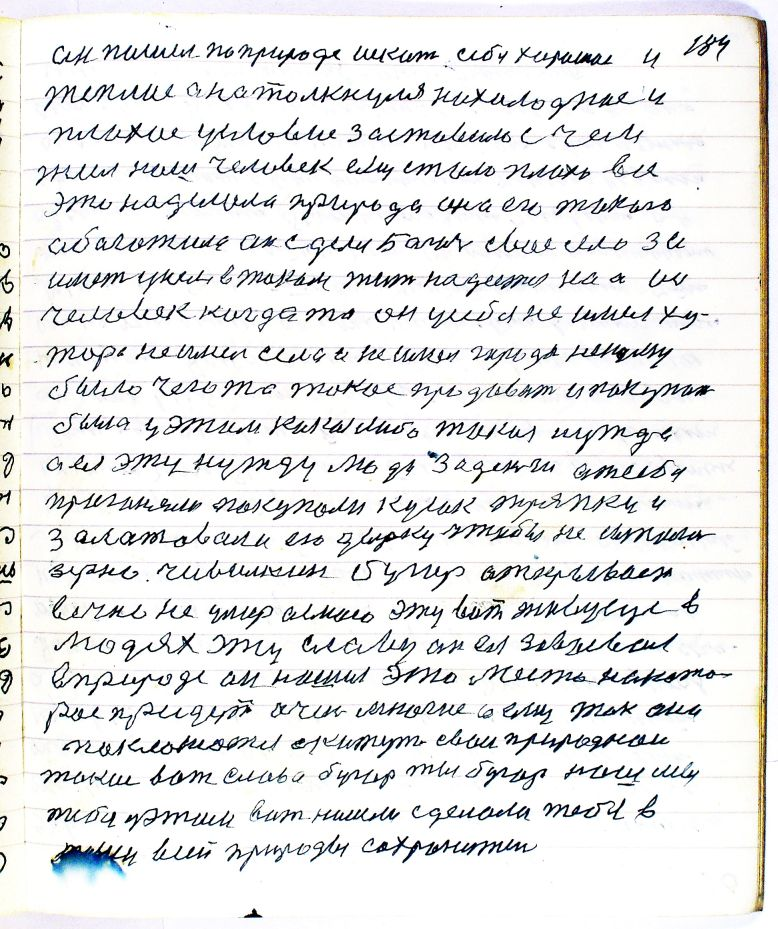 184
он пошел по природе искат себе хорошае и
теплае а натолкнулся на халоднае и
плахое условие заставелос чем
жил наш человек ему стало плохо все
это наделала природа она его такого
абагатила он сдели Багач свае село за
имет умел в таком жит надеется на а он
человек когда то он у себя не имел ху-
тора не имел села а не имел города некому
было чегота такое продават и покупат
была у этом какая либо такая нужда
а ея эту нужду люди за денги от себя
прагоняли покупали кусок тряпки и
залатовали ею дырку чтобы не сыпала
зерно. чивилкин бугор аткрывает
вечно не умераемаго эту вот живущую в
людях эту славу он ея завоевал
в природе он нашел это место на като-
рае придет очен многие и ему так они
паклонются скинут свои природнаи
такие вот слова бугор ты бугор нашли мы
тебя у этом вот нашли сделали тебя в
всей природы сохранители